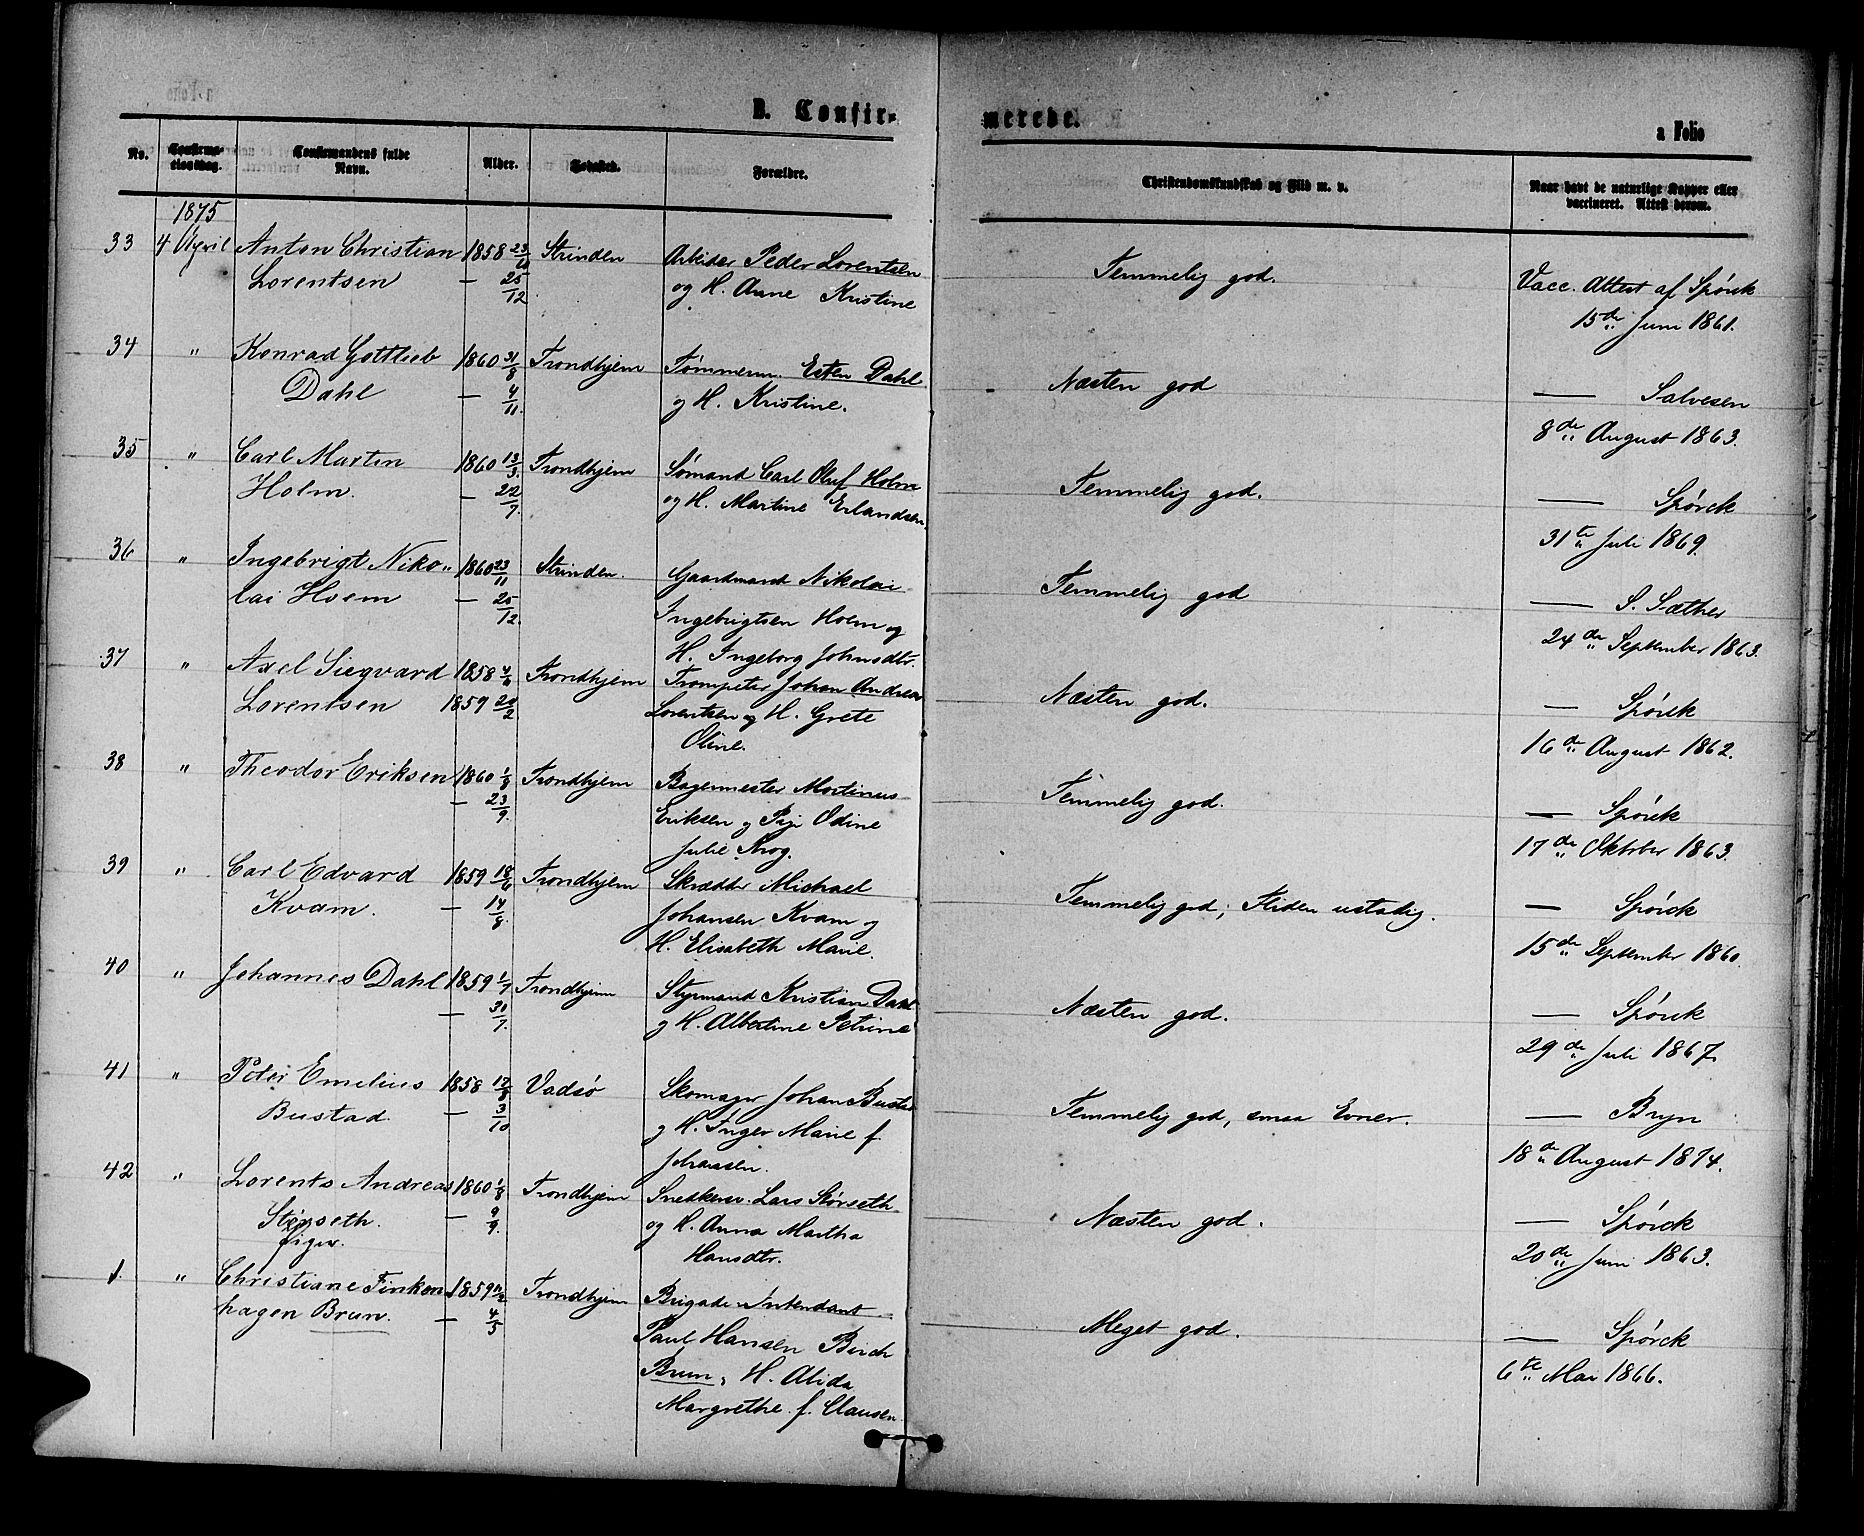 B. Confir-
merede.
a Folio
No.
Confirma-
tionsdag.
Confirmandens fulde
Navn.
Alder.
Fødested.
Forældre.
Christendomskundskab og Flid m. v.
Naar havt de naturlige Kopper eller
vaccineret. Attest derom.
1875
33 4 April Anton Christian 1858 23/10 Strinden Arbeider Peder Lorentsen Temmelig god. Vacc. Attest af Spörck
Lorentsen — 25/12 og H. Anne Kristine 15de Juni 1861.
34 " Konrad Gottlieb 1860 31/8 Trondhjem Tømmerm. Esten Dahl Næsten god — Salvesen
Dahl — 4/11. og H. Kristine. 8de August 1863.
35 " Carl Martin 1860 13/3. Trondhjem Sømand Carl Oluf Holm Temmelig god. — Spörck
Holm. — 22/7. og H. Martine Erlandsen. 31te Juli 1869.
36 " Ingebrigt Niko- 1860 23/11 Strinden. Gaardmand Nikolai Temmelig god — S. Sæther
lai Hoem — 25/12. Ingebrigtsen Hoem og 24de September 1863.
H. Ingeborg Johnsdtr.
37 " Axel Siegvard 1858 Trondhjem Trompeter Johan Andreas Næsten god. — Spörck
Lorentsen 1859 20/2 Lorentsen og H. Grete 16de August 1862.
Oline.
38 " Theodor Eriksen 1860 1/8 Trondhjem Bagermester Martinus Temmelig god. — Spörck
— 23/9. Eriksen og Pige Odine 17de Oktober 1863.
Julie Krog.
39 " Carl Edvard 1859 18/6 Trondhjem Skrædder Michael Temmelig god; Fliden ustadig. — Spörck
Kvam. — 14/8. Johansen Kvam og 15de September 1860.
H. Elisabeth Marie.
40 " Johannes Dahl 1859 1/7 Trondhjem Styrmand Kristian Dahl Næsten god. — Spörck
— 30/7. og H. Albertine Petrine 29de Juli 1867.
41 " Peter Emelius 1858 12/8 Vadsö Skomager Johan Bustad Temmelig god, smaa Evner. — Bryn
Bustad. — 3/10 og H. Inger Marie f. 18de August 1874.
Johansen.
42 " Lorents Andreas 1860 1/8 Trondhjem Snedkersv. Lars Störseth Næsten god. — Spörck
Störseth. — 9/9. og H. Anna Martha 20de Juni 1863.
Hansdtr.
Piger.
1. " Christiane Finken- 1859 Trondhjem Brigade-Intendant Meget god. — Spörck
hagen Brun. — 4/5 Paul Hansen Birch 6te Mai 1866.
Brun, H. Alida
Margrethe f. Clausen.